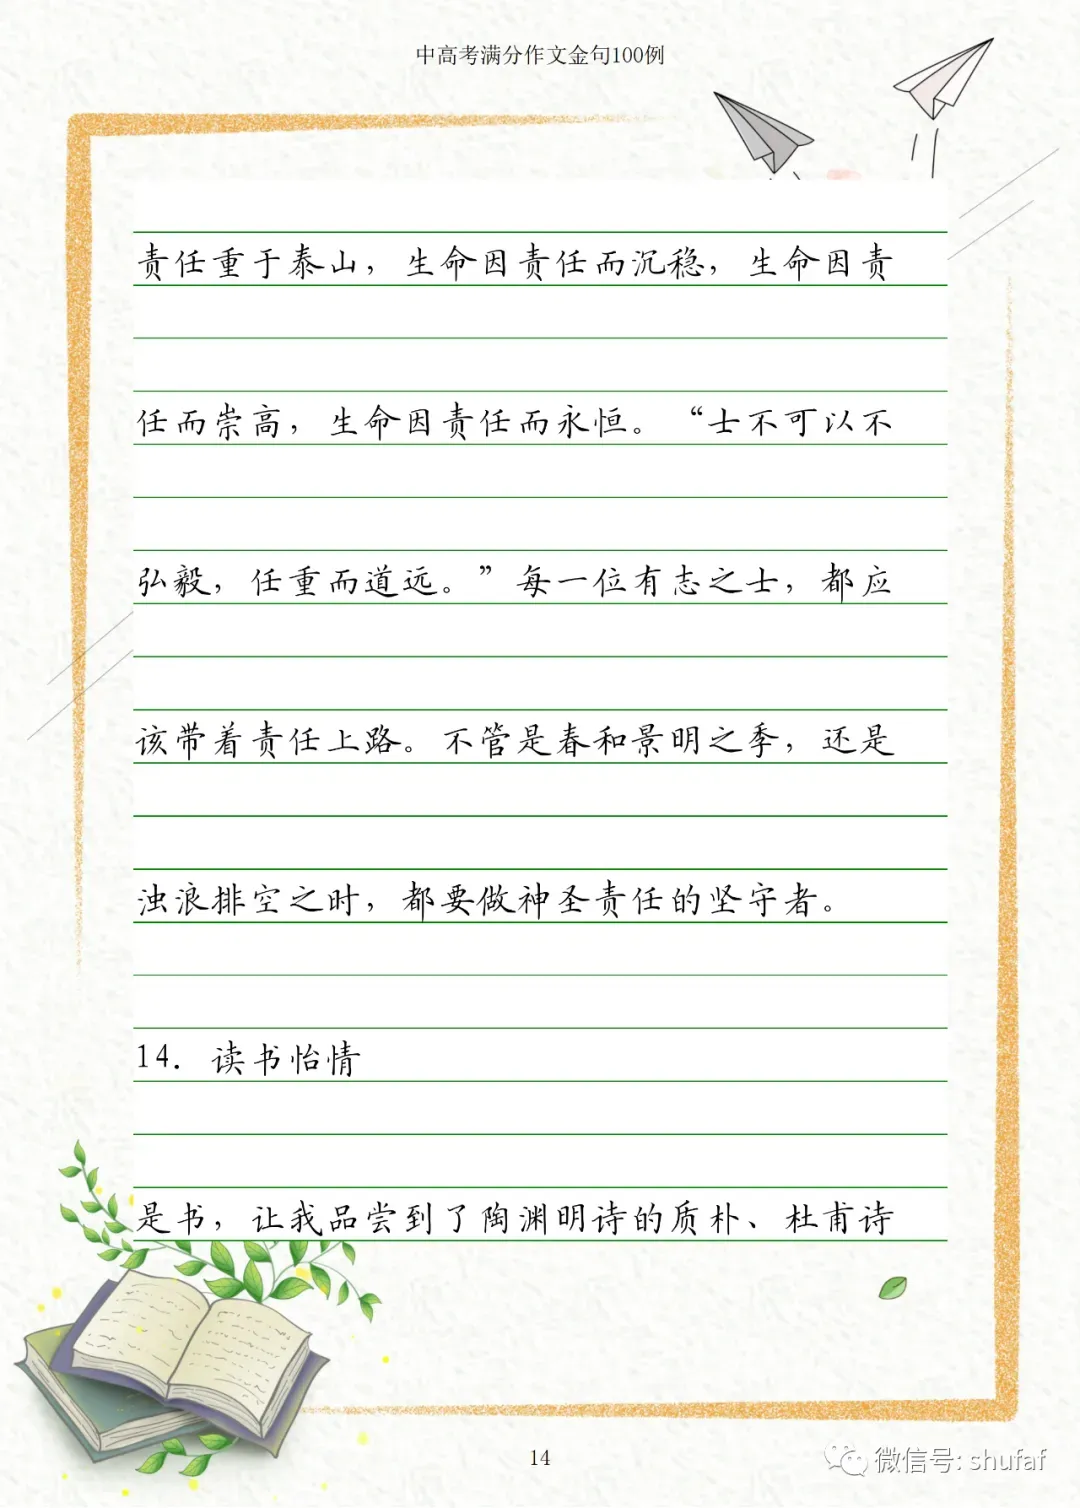 中高考满分作文金句100例
责任重于泰山，生命因责任而沉稳，生命因责
任而崇高，生命因责任而永恒。“士不可以不
弘毅，任重而道远。”每一位有志之士，都应
该带着责任上路。不管是春和景明之季，还是
浊浪排空之时，都要做神圣责任的坚守者。
14. 读书怡情
是书，让我品尝到了陶渊明诗的质朴、杜甫诗
14
微信号: shufaf